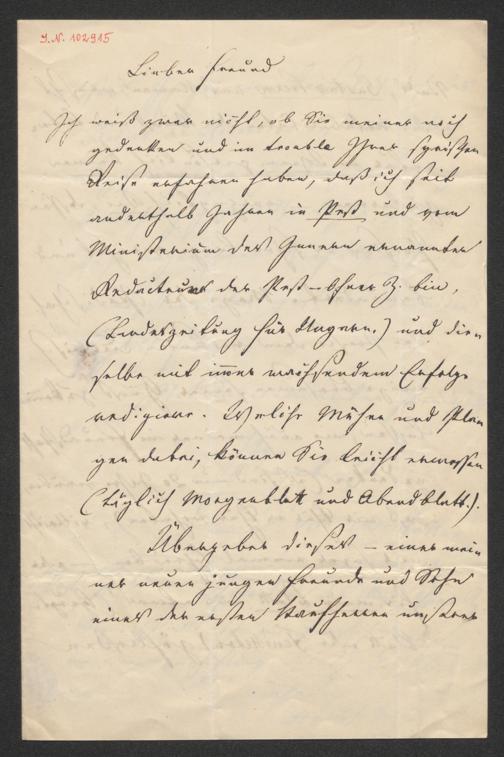 I.N. 102915
Lieber Freund
Ich weiß zwar nicht, ob Sie meiner noch
gedenken und im trouble Ihrer
Reise erfahren haben, daß ich seit
anderthalb Jahren in Pest und vom
Ministerium des Innern ernannter
Redacteur der Pest-Ofner Z. bin,
(Landeszeitung für Ungarn.) und die-
selbe mit immer wachsendem Erfolge
redigiere. Welche Mühen und Pla-
gen dabei, können Sie leicht ermessen
(täglich Morgenblatt und Abendblatt.).
Übergeber dieses – einer mei-
ner neuen jungen Freunde und Sohn
eines der ersten Kaufherren unserer